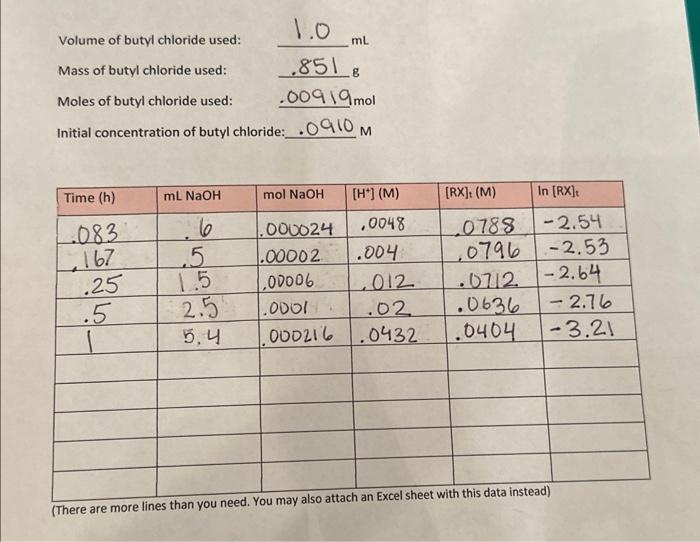 Volume of butyl chloride used: 1.0 mL
Mass of butyl chloride used: .851 g
Moles of butyl chloride used: .00919 mol
Initial concentration of butyl chloride: .0910 M
Time (h) mL NaOH mol NaOH [H⁺] (M) [RX]t (M) ln [RX]t
.083 .6 .000024 .0048 .0788 -2.54
.167 .5 .00002 .004 .0796 -2.53
.25 1.5 .00006 .012 .0712 -2.64
.5 2.5 .0001 .02 .0636 -2.76
1 5.4 .000216 .0432 .0404 -3.21
(There are more lines than you need. You may also attach an Excel sheet with this data instead)